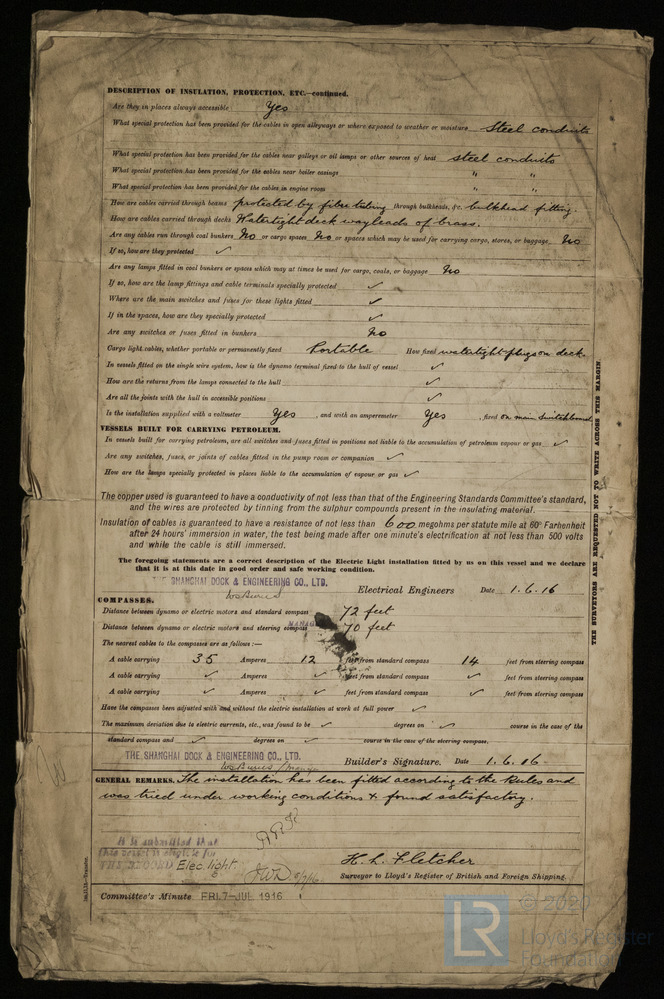 DESCRIPTION OF INSULATION, PROTECTION, ETC.—continued.
Are they in places always accessible Yes
What special protection has been provided for the cables in open alleyways or where exposed to weather or moisture Steel conduits
What special protection has been provided for the cables near galleys or oil lamps or other sources of heat steel conduits
What special protection has been provided for the cables near boiler casings " "
What special protection has been provided for the cables in engine room " "
How are cables carried through beams protected by fibre tubing through bulkheads, &c. bulkhead fitting.
How are cables carried through decks Watertight deck wayleads of brass.
Are any cables run through coal bunkers No or cargo spaces No or spaces which may be used for carrying cargo, stores, or baggage No
If so, how are they protected ✓
Are any lamps fitted in coal bunkers or spaces which may at times be used for cargo, coals, or baggage No
If so, how are the lamp fittings and cable terminals specially protected ✓
Where are the main switches and fuses for these lights fitted ✓
If in the spaces, how are they specially protected ✓
Are any switches or fuses fitted in bunkers No
Cargo light cables, whether portable or permanently fixed Portable How fixed watertight plugs on deck.
In vessels fitted on the single wire system, how is the dynamo terminal fixed to the hull of vessel ✓
How are the returns from the lamps connected to the hull ✓
Are all the joints with the hull in accessible positions ✓
Is the installation supplied with a voltmeter Yes , and with an amperemeter Yes , fixed on main switchboard
VESSELS BUILT FOR CARRYING PETROLEUM.
In vessels built for carrying petroleum, are all switches and fuses fitted in positions not liable to the accumulation of petroleum vapour or gas ✓
Are any switches, fuses, or joints of cables fitted in the pump room or companion ✓
How are the lamps specially protected in places liable to the accumulation of vapour or gas ✓
The copper used is guaranteed to have a conductivity of not less than that of the Engineering Standards Committee's standard,
and the wires are protected by tinning from the sulphur compounds present in the insulating material.
Insulation of cables is guaranteed to have a resistance of not less than 600 megohms per statute mile at 60° Farhenheit
after 24 hours' immersion in water, the test being made after one minute's electrification at not less than 500 volts
and while the cable is still immersed.
The foregoing statements are a correct description of the Electric Light installation fitted by us on this vessel and we declare
that it is at this date in good order and safe working condition.
THE SHANGHAI DOCK & ENGINEERING CO., LTD.
Electrical Engineers Date 1.6.16
COMPASSES.
Distance between dynamo or electric motors and standard compass 72 feet
Distance between dynamo or electric motors and steering compass 70 feet
The nearest cables to the compasses are as follows:—
A cable carrying 35 Amperes 12 feet from standard compass 14 feet from steering compass
A cable carrying ✓ Amperes ✓ feet from standard compass ✓ feet from steering compass
A cable carrying ✓ Amperes ✓ feet from standard compass ✓ feet from steering compass
Have the compasses been adjusted with and without the electric installation at work at full power ✓
The maximum deviation due to electric currents, etc., was found to be ✓ degrees on ✓ course in the case of the
standard compass and ✓ degrees on ✓ course in the case of the steering compass.
THE SHANGHAI DOCK & ENGINEERING CO., LTD.
Builder's Signature. Date 1.6.16
GENERAL REMARKS. The installation has been fitted according to the Rules and
was tried under working conditions & found satisfactory.
It is submitted that
this vessel is eligible for
THE RECORD Elec. light.
H. L. Fletcher
Surveyor to Lloyd's Register of British and Foreign Shipping.
Committee's Minute FRI. 7-JUL 1916
THE SURVEYORS ARE REQUESTED NOT TO WRITE ACROSS THIS MARGIN.
LR
© 2020
Lloyd's Register
Foundation